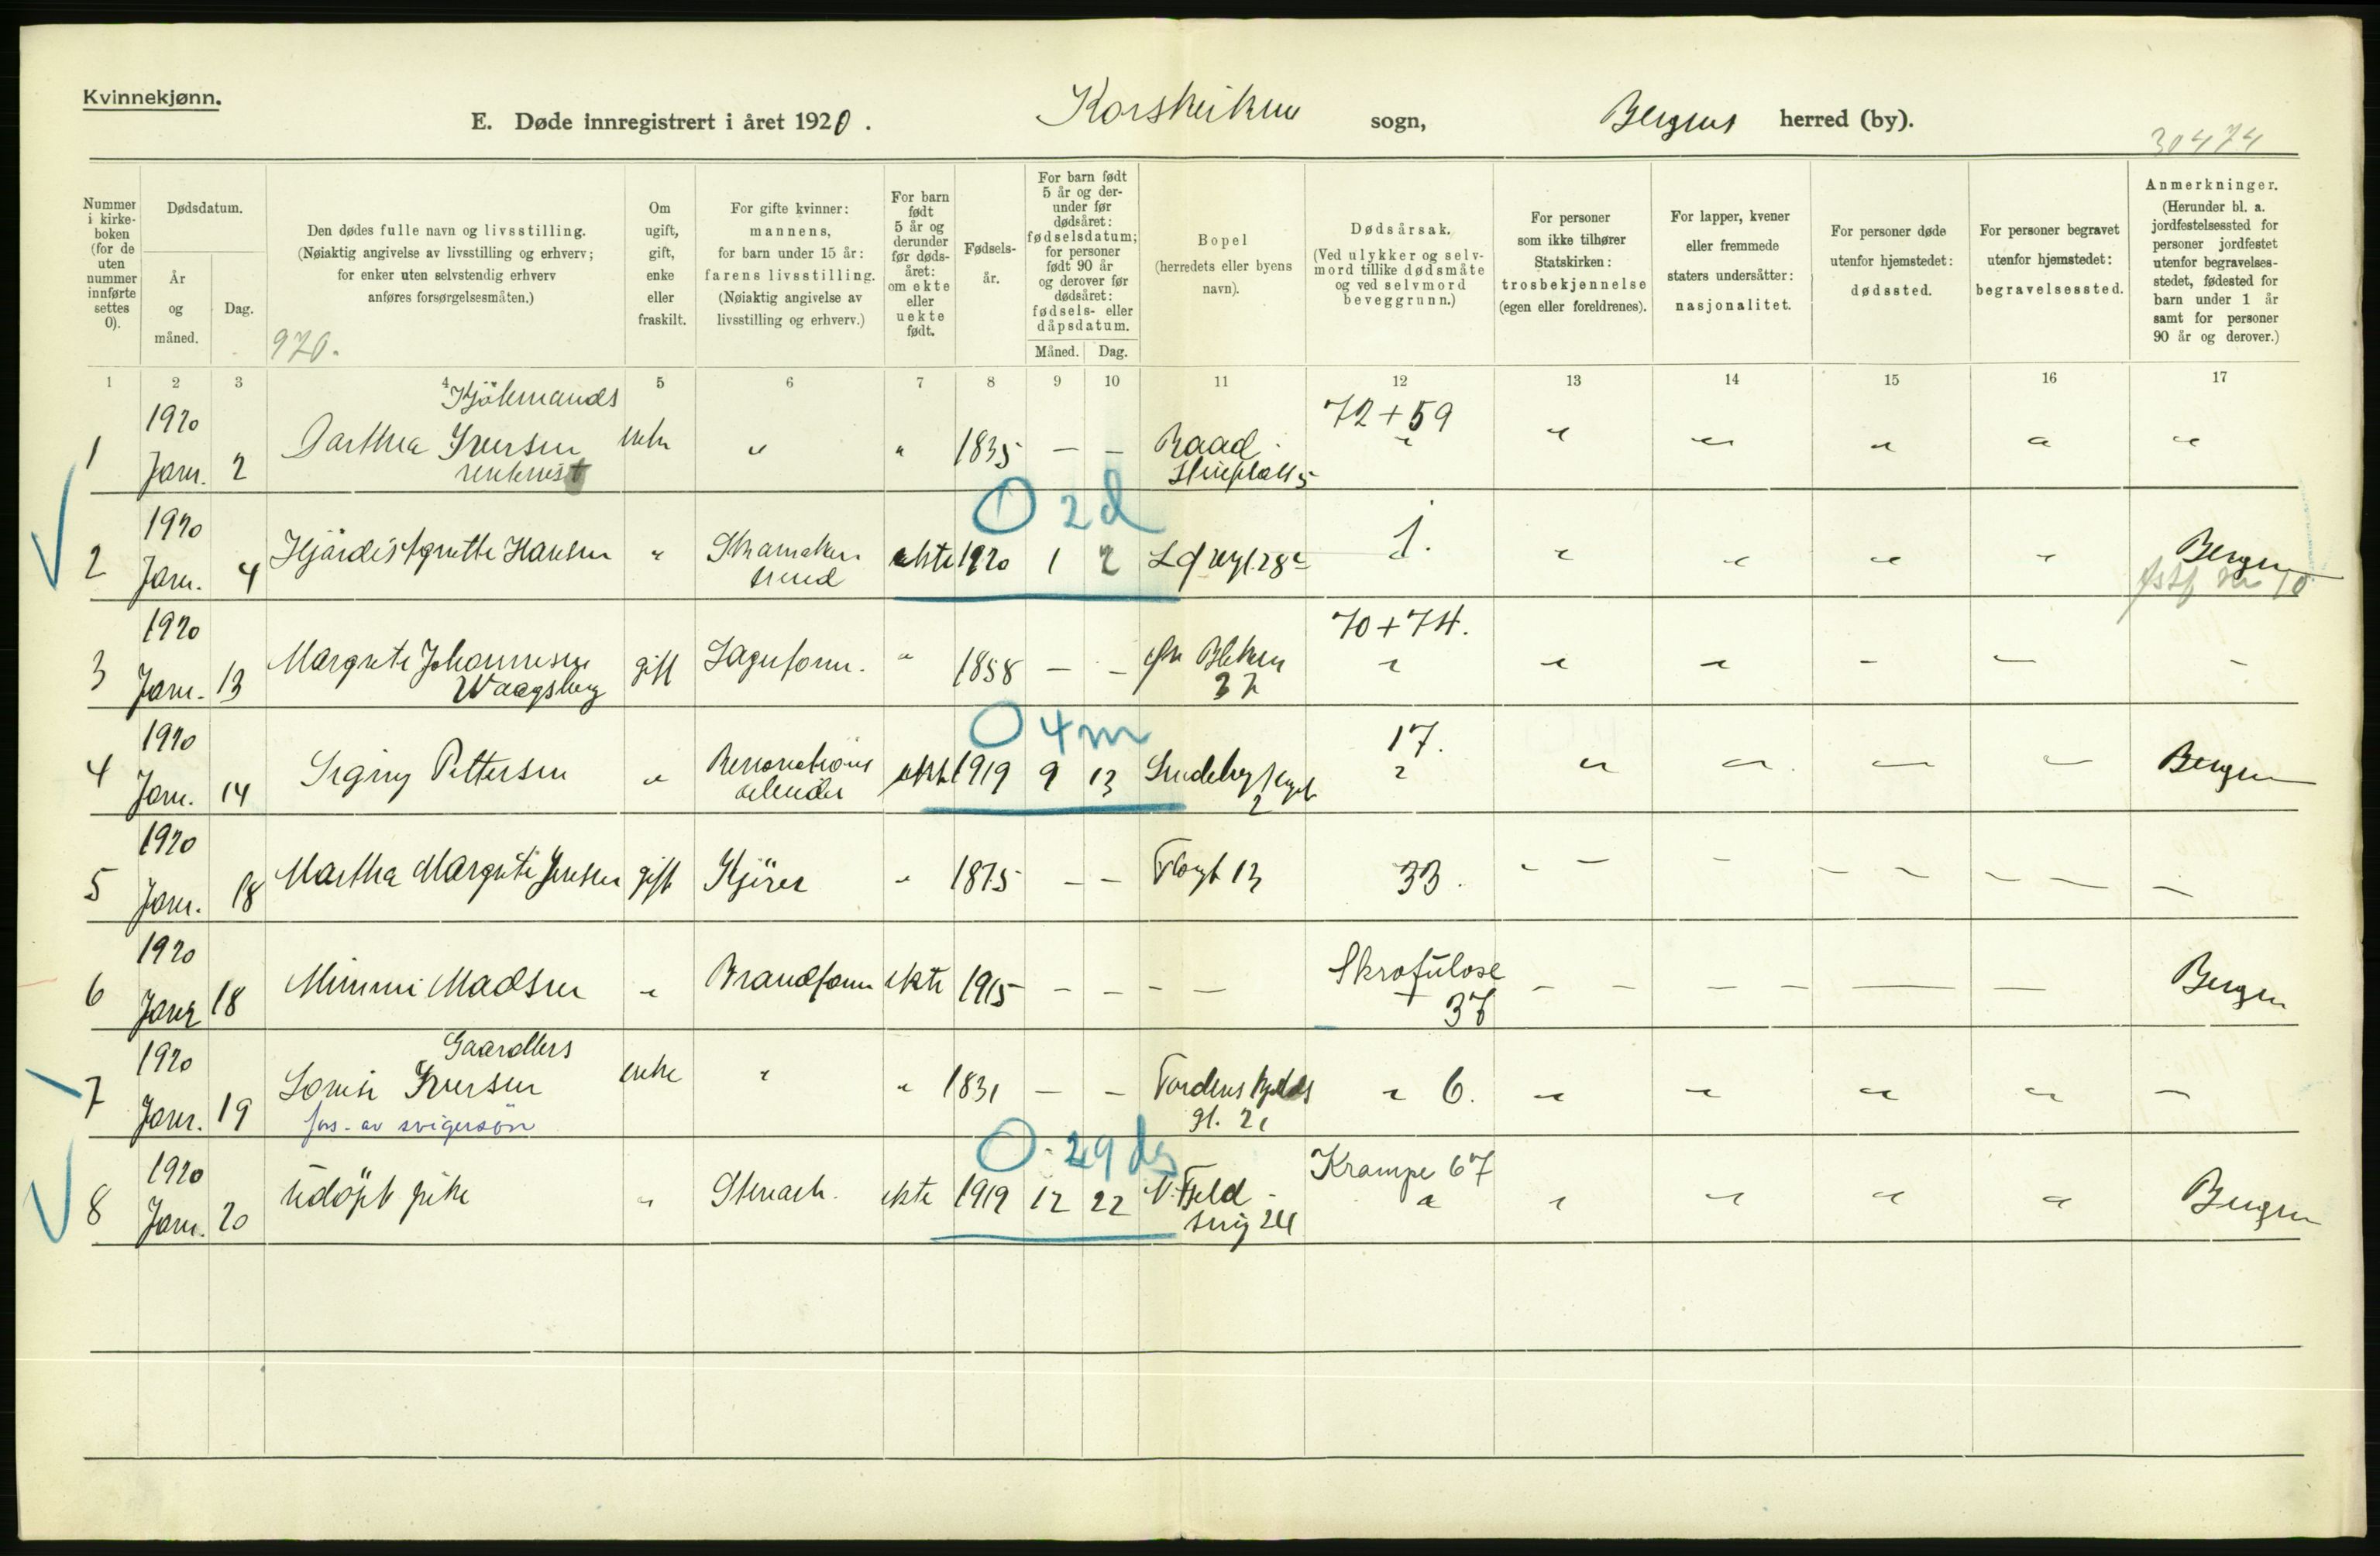 Kvinnekjønn.
E. Døde innregistrert i året 1920. Korskirken sogn, Bergens herred (by).
30474
Nummer i kirke-boken (for de uten nummer innførte settes 0).
Dødsdatum.
År og måned.
Dag.
Den dødes fulle navn og livsstilling.
(Nøiaktig angivelse av livsstilling og erhverv;
for enker uten selvstendig erhverv
anføres forsørgelsesmåten.)
920.
Om ugift, gift, enke eller fraskilt.
For gifte kvinner:
mannens,
for barn under 15 år:
farens livsstilling.
(Nøiaktig angivelse av
livsstilling og erhverv.)
For barn født 5 år og derunder før døds-året: om ekte eller uekte født.
Fødsels-år.
For barn født 5 år og der-under før dødsåret: fødselsdatum; for personer født 90 år og derover før dødsåret: fødsels- eller dåpsdatum.
Måned. Dag.
Bopel
(herredets eller byens
navn).
Dødsårsak.
(Ved ulykker og selv-
mord tillike dødsmåte
og ved selvmord
beveggrunn.)
For personer
som ikke tilhører
Statskirken:
trosbekjennelse
(egen eller foreldrenes).
For lapper, kvener
eller fremmede
staters undersåtter:
nasjonalitet.
For personer døde
utenfor hjemstedet:
dødssted.
For personer begravet
utenfor hjemstedet:
begravelsessted.
Anmerkninger.
(Herunder bl. a.
jordfestelsessted for
personer jordfestet
utenfor begravelses-
stedet, fødested for
barn under 1 år
samt for personer
90 år og derover.)
1 2 3 4 5 6 7 8 9 10 11 12 13 14 15 16 17
Kjølemands
1920 72+59
1 Janr. 2 Dorthea Iversen enke " " 1835 — — Raad- " " " " " "
rentenist
0 2d
1920
2 Janr. 4 Hjørdis Agnethe Hansen " Skomaker ekte 1920 1 2 1. " " " " Bergen
svend
1920 70+74.
3 Janr. 13 Margrete Johannesen gift " 1858 — — " " " - — -
Waagsberg
0 4m
1920 17.
4 Janr. 14 Signy Pettersen " ekte 1919 9 13 " " " " " Bergen
2
1920
5 Janr. 18 Martha Margrete Jensen gift Kjører " 1875 — — 33. - — - — — - — — —
1920 Skrofulose
6 Janr 18 Mimmi Madsen " Brandform ekte 1915 — — — — + 37 — — — — — — Bergen
Gaardbers
1920
7 Janr. 19 Lovise Iversen enke " " 1831 — — Tordenskjolds " 6. " " " " —
fors. av svigersøn gt. 21
0. 29 dg
1920 Krampe 67
8 Janr. 20 Udøpt pike " Stenarb. ekte 1919 12 22 N. Fjeld- " " " " " Bergen
smug 24